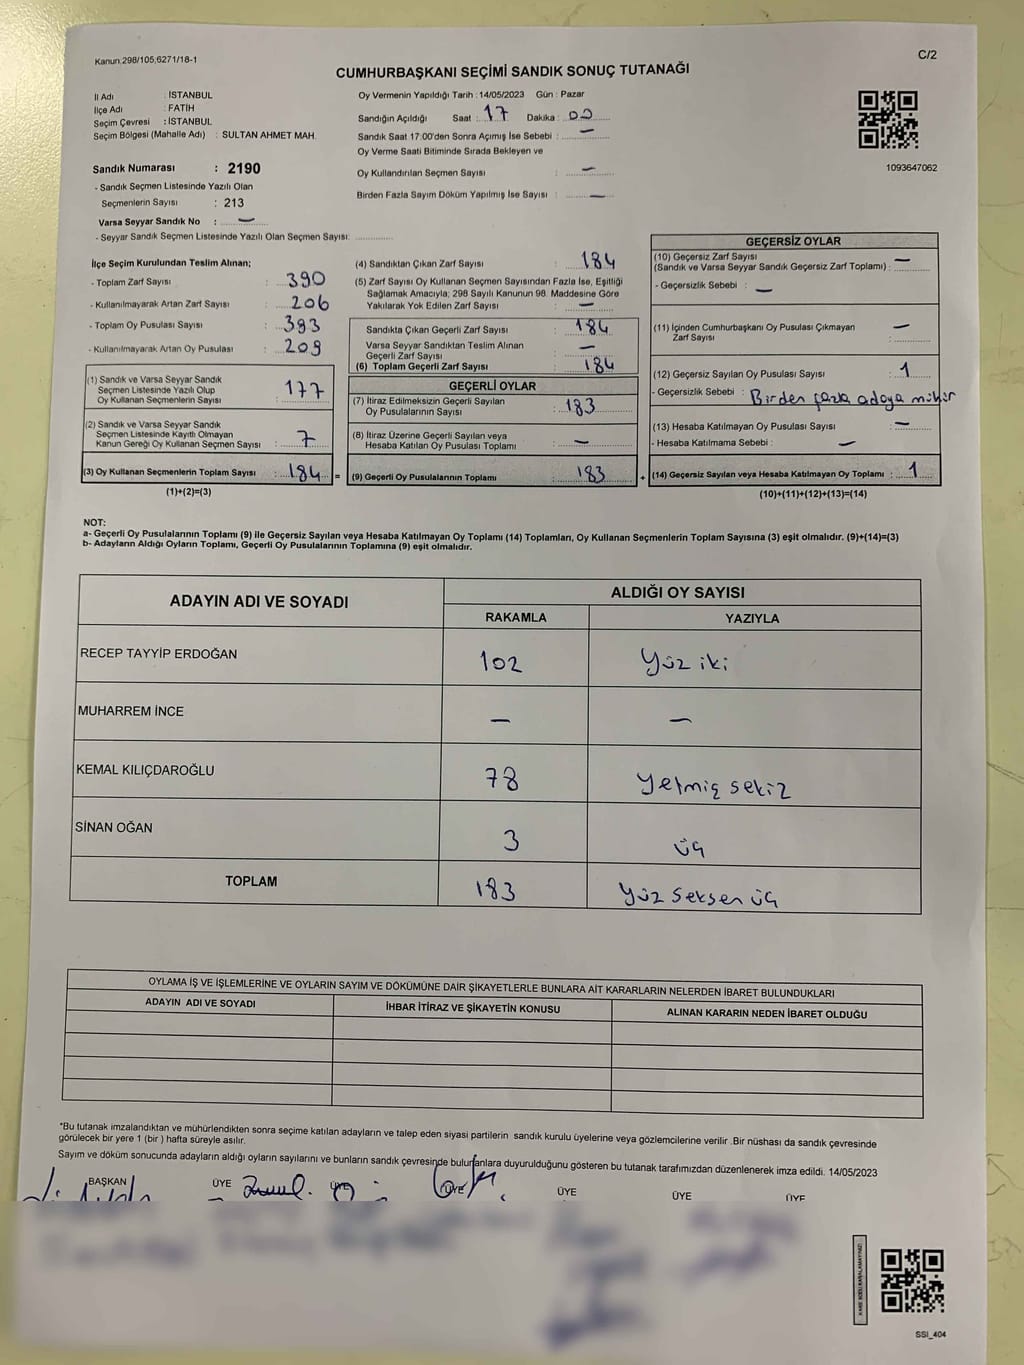 Kanun 298/105,6271/18-1
C/2
CUMHURBAŞKANI SEÇİMİ SANDIK SONUÇ TUTANAĞI
İl Adı : İSTANBUL
İlçe Adı : FATİH
Seçim Çevresi : İSTANBUL
Seçim Bölgesi (Mahalle Adı) : SULTAN AHMET MAH.
Sandık Numarası : 2190
- Sandık Seçmen Listesinde Yazılı Olan
Seçmenlerin Sayısı : 213
Varsa Seyyar Sandık No : —
- Seyyar Sandık Seçmen Listesinde Yazılı Olan Seçmen Sayısı: ............
Oy Vermenin Yapıldığı Tarih : 14/05/2023 Gün : Pazar
Sandığın Açıldığı Saat : 17 Dakika : 00
Sandık Saat 17:00'den Sonra Açımış İse Sebebi : —
Oy Verme Saati Bitiminde Sırada Bekleyen ve
Oy Kullandırılan Seçmen Sayısı : —
Birden Fazla Sayım Döküm Yapılmış İse Sayısı : —
1093647062
İlçe Seçim Kurulundan Teslim Alınan;
- Toplam Zarf Sayısı : 390
- Kullanılmayarak Artan Zarf Sayısı : 206
- Toplam Oy Pusulası Sayısı : 393
- Kullanılmayarak Artan Oy Pusulası : 209
(1) Sandık ve Varsa Seyyar Sandık
Seçmen Listesinde Yazılı Olup
Oy Kullanan Seçmenlerin Sayısı : 177
(2) Sandık ve Varsa Seyyar Sandık
Seçmen Listesinde Kayıtlı Olmayan
Kanun Gereği Oy Kullanan Seçmen Sayısı : 7
(3) Oy Kullanan Seçmenlerin Toplam Sayısı : 184 =
(1)+(2)=(3)
(4) Sandıktan Çıkan Zarf Sayısı : 184
(5) Zarf Sayısı Oy Kullanan Seçmen Sayısından Fazla İse, Eşitliği
Sağlamak Amacıyla; 298 Sayılı Kanunun 98. Maddesine Göre
Yakılarak Yok Edilen Zarf Sayısı : —
Sandıkta Çıkan Geçerli Zarf Sayısı : 184
Varsa Seyyar Sandıktan Teslim Alınan
Geçerli Zarf Sayısı : —
(6) Toplam Geçerli Zarf Sayısı : 184
GEÇERLİ OYLAR
(7) İtiraz Edilmeksizin Geçerli Sayılan
Oy Pusulalarının Sayısı : 183
(8) İtiraz Üzerine Geçerli Sayılan veya
Hesaba Katılan Oy Pusulası Toplamı : —
(9) Geçerli Oy Pusulalarının Toplamı : 183 +
GEÇERSİZ OYLAR
(10) Geçersiz Zarf Sayısı
(Sandık ve Varsa Seyyar Sandık Geçersiz Zarf Toplamı) : —
- Geçersizlik Sebebi : —
(11) İçinden Cumhurbaşkanı Oy Pusulası Çıkmayan
Zarf Sayısı : —
(12) Geçersiz Sayılan Oy Pusulası Sayısı : 1
- Geçersizlik Sebebi : Birden fazla adaya mühür
(13) Hesaba Katılmayan Oy Pusulası Sayısı : —
- Hesaba Katılmama Sebebi : —
(14) Geçersiz Sayılan veya Hesaba Katılmayan Oy Toplamı : 1
(10)+(11)+(12)+(13)=(14)
NOT:
a- Geçerli Oy Pusulalarının Toplamı (9) ile Geçersiz Sayılan veya Hesaba Katılmayan Oy Toplamı (14) Toplamları, Oy Kullanan Seçmenlerin Toplam Sayısına (3) eşit olmalıdır. (9)+(14)=(3)
b- Adayların Aldığı Oyların Toplamı, Geçerli Oy Pusulalarının Toplamına (9) eşit olmalıdır.
ADAYIN ADI VE SOYADI ALDIĞI OY SAYISI
RAKAMLA YAZIYLA
RECEP TAYYİP ERDOĞAN 102 Yüz iki
MUHARREM İNCE — —
KEMAL KILIÇDAROĞLU 78 Yetmiş sekiz
SİNAN OĞAN 3 üç
TOPLAM 183 Yüz seksen üç
OYLAMA İŞ VE İŞLEMLERİNE VE OYLARIN SAYIM VE DÖKÜMÜNE DAİR ŞİKAYETLERLE BUNLARA AİT KARARLARIN NELERDEN İBARET BULUNDUKLARI
ADAYIN ADI VE SOYADI İHBAR İTİRAZ VE ŞİKAYETİN KONUSU ALINAN KARARIN NEDEN İBARET OLDUĞU
*Bu tutanak imzalandıktan ve mühürlendikten sonra seçime katılan adayların ve talep eden siyasi partilerin sandık kurulu üyelerine veya gözlemcilerine verilir .Bir nüshası da sandık çevresinde
görülecek bir yere 1 (bir ) hafta süreyle asılır.
Sayım ve döküm sonucunda adayların aldığı oyların sayılarını ve bunların sandık çevresinde bulunanlara duyurulduğunu gösteren bu tutanak tarafımızdan düzenlenerek imza edildi. 14/05/2023
BAŞKAN ÜYE ÜYE ÜYE ÜYE ÜYE ÜYE
SSI_404